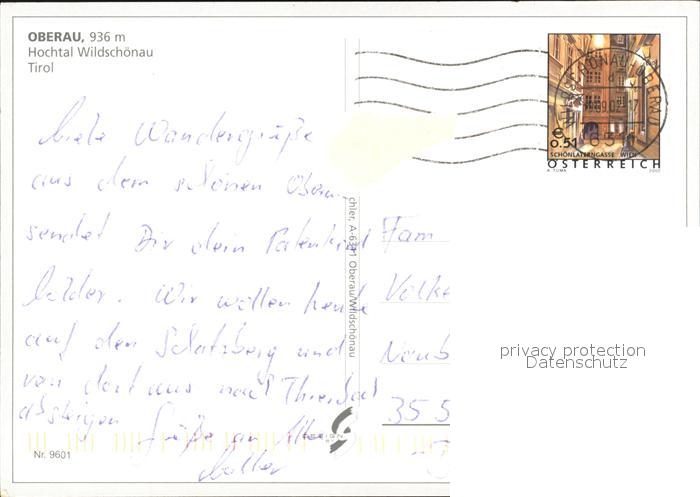 OBERAU, 936 m
Hochtal Wildschönau
Tirol
Viele Wandergrüße
aus dem schönen Oberau
sendet Dir dein Patenkind
Wir wollen heute
auf den Schatzberg und
von dort aus nach Thierbach
absteigen
Grüße an alle
Nr. 9601
chler, A-6311 Oberau/Wildschönau
DESIGN
€ 0.51
SCHÖNLATERNGASSE WIEN
ÖSTERREICH
A. TUMA 2002
Fam
Volke
Neub
355
privacy protection
Datenschutz